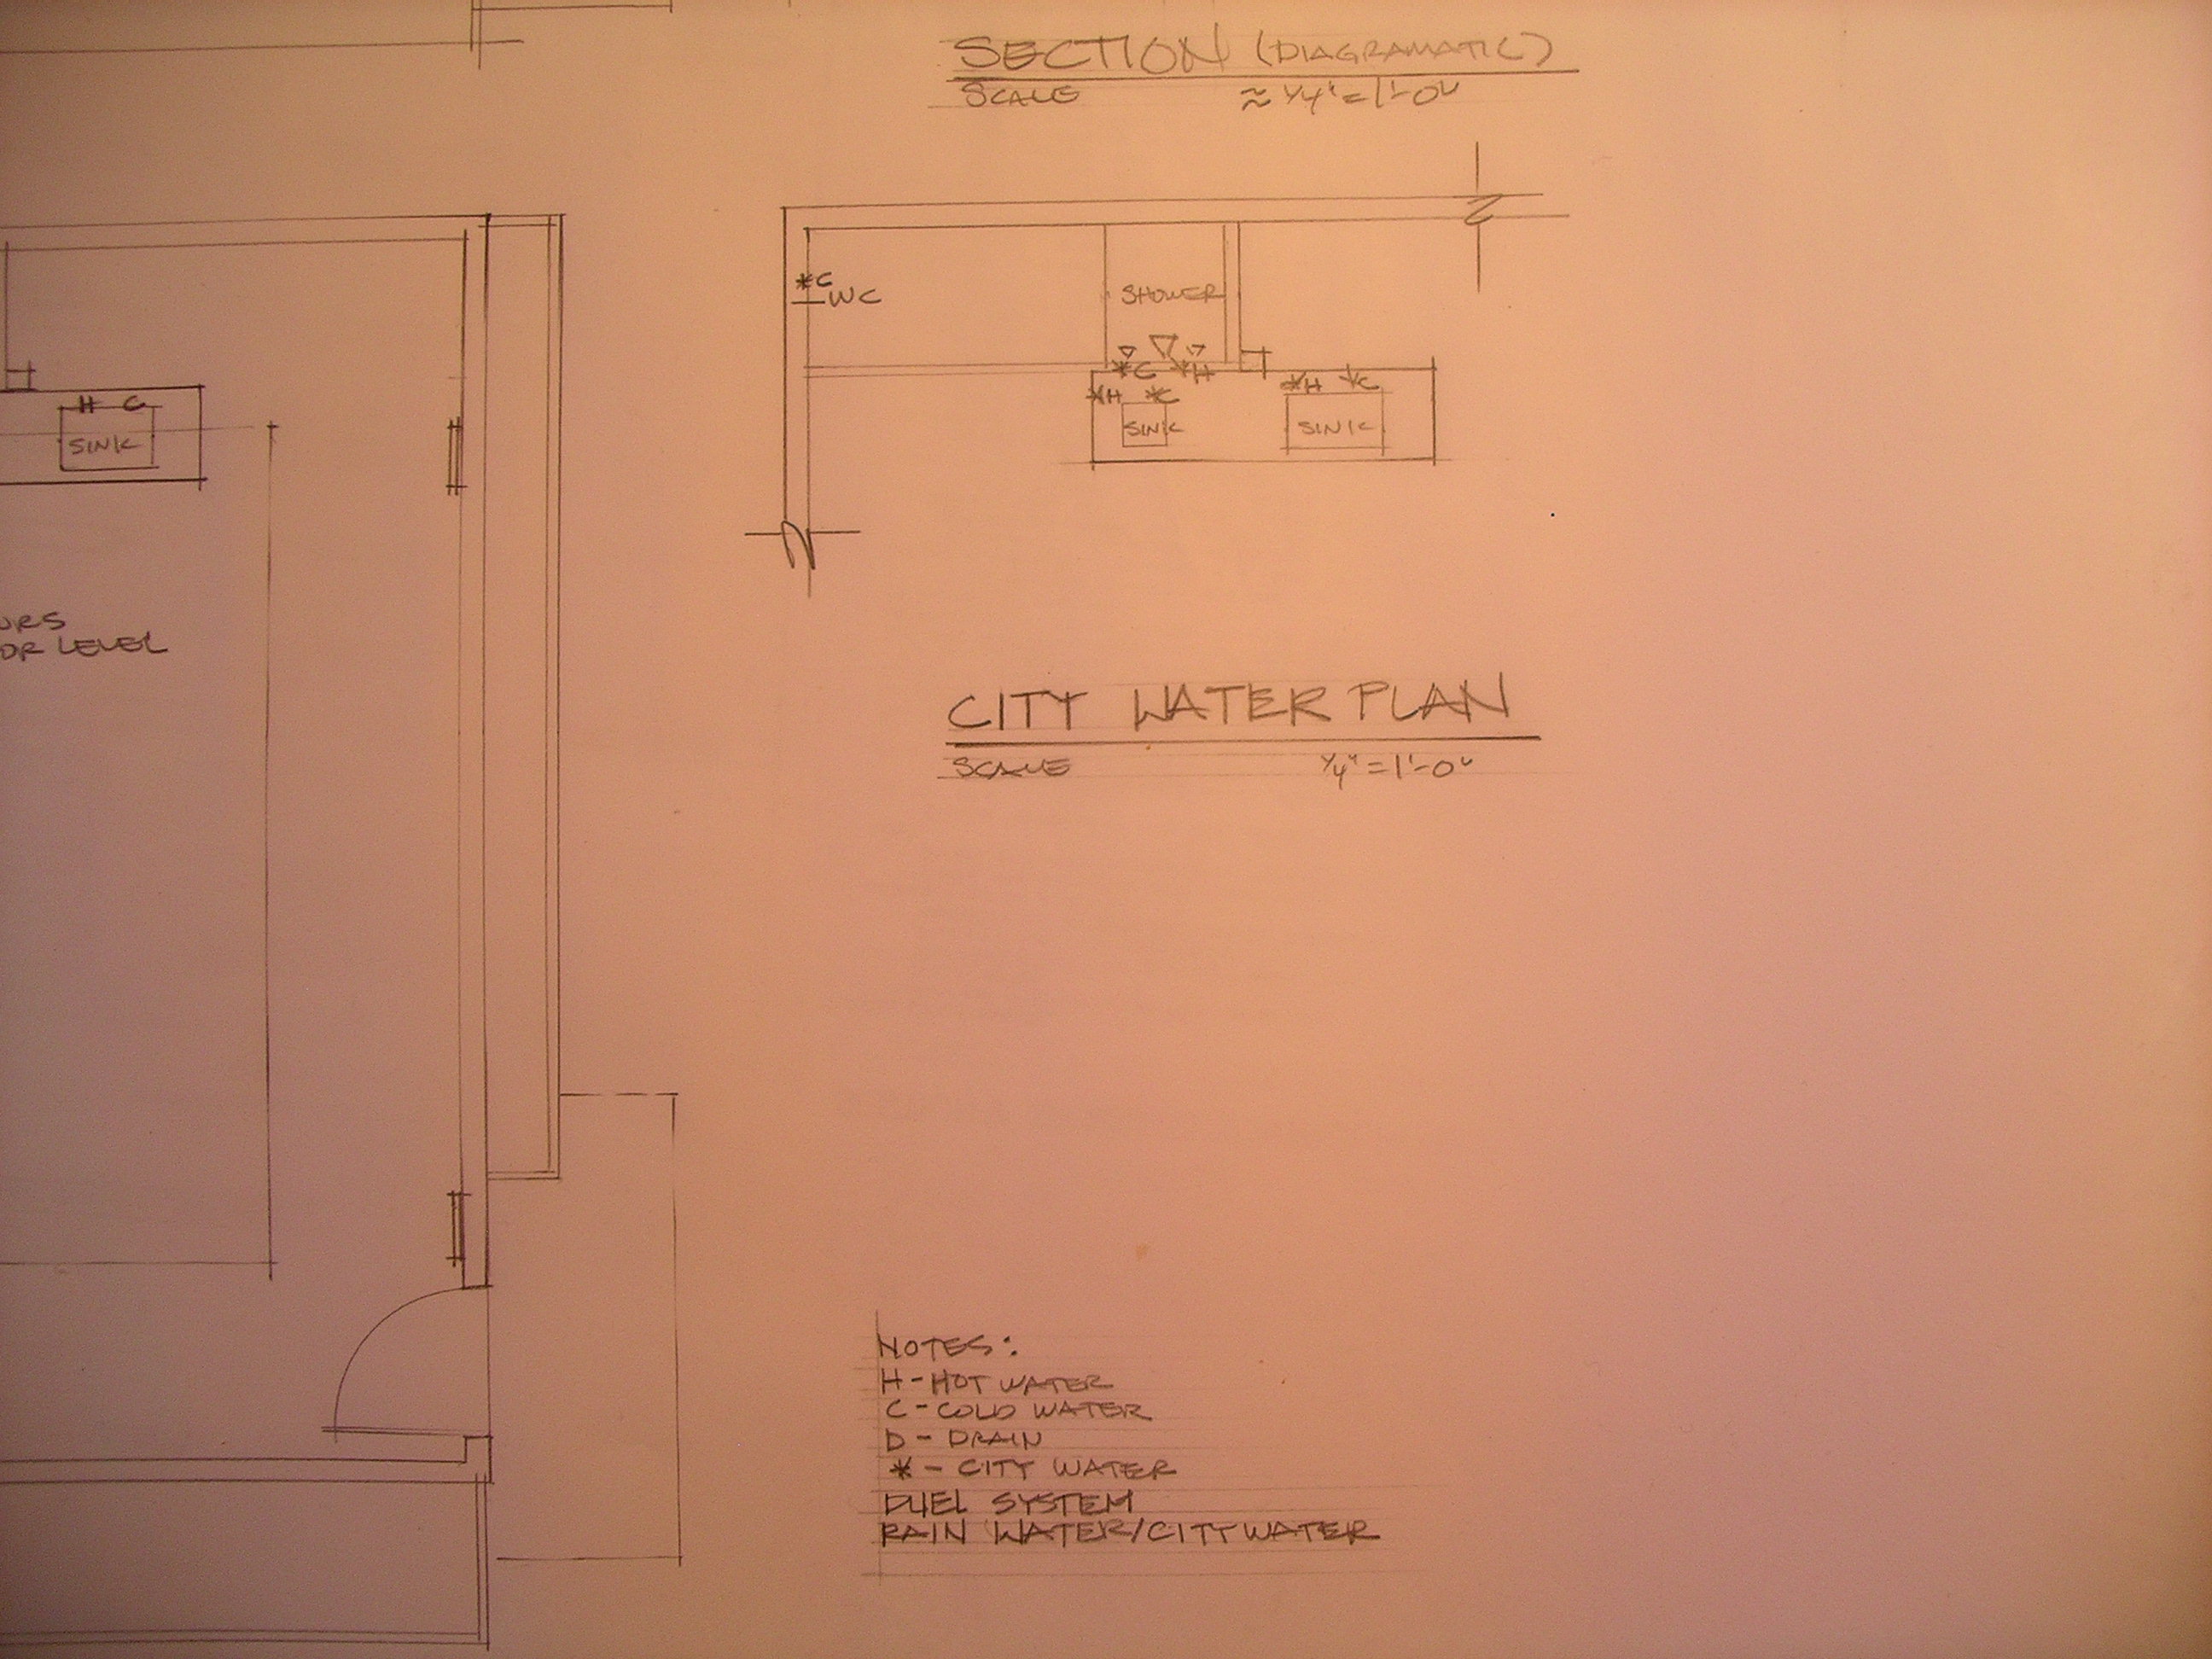 SECTION (DIAGRAMATIC)
SCALE ≈ 1/4" = 1'-0"
*C
WC
SHOWER
*C *H
*H *C
SINK
*H *C
SINK
H C
SINK
OR LEVEL
CITY WATER PLAN
SCALE 1/4" = 1'-0"
NOTES:
H - HOT WATER
C - COLD WATER
D - DRAIN
* - CITY WATER
DUEL SYSTEM
RAIN WATER/CITY WATER